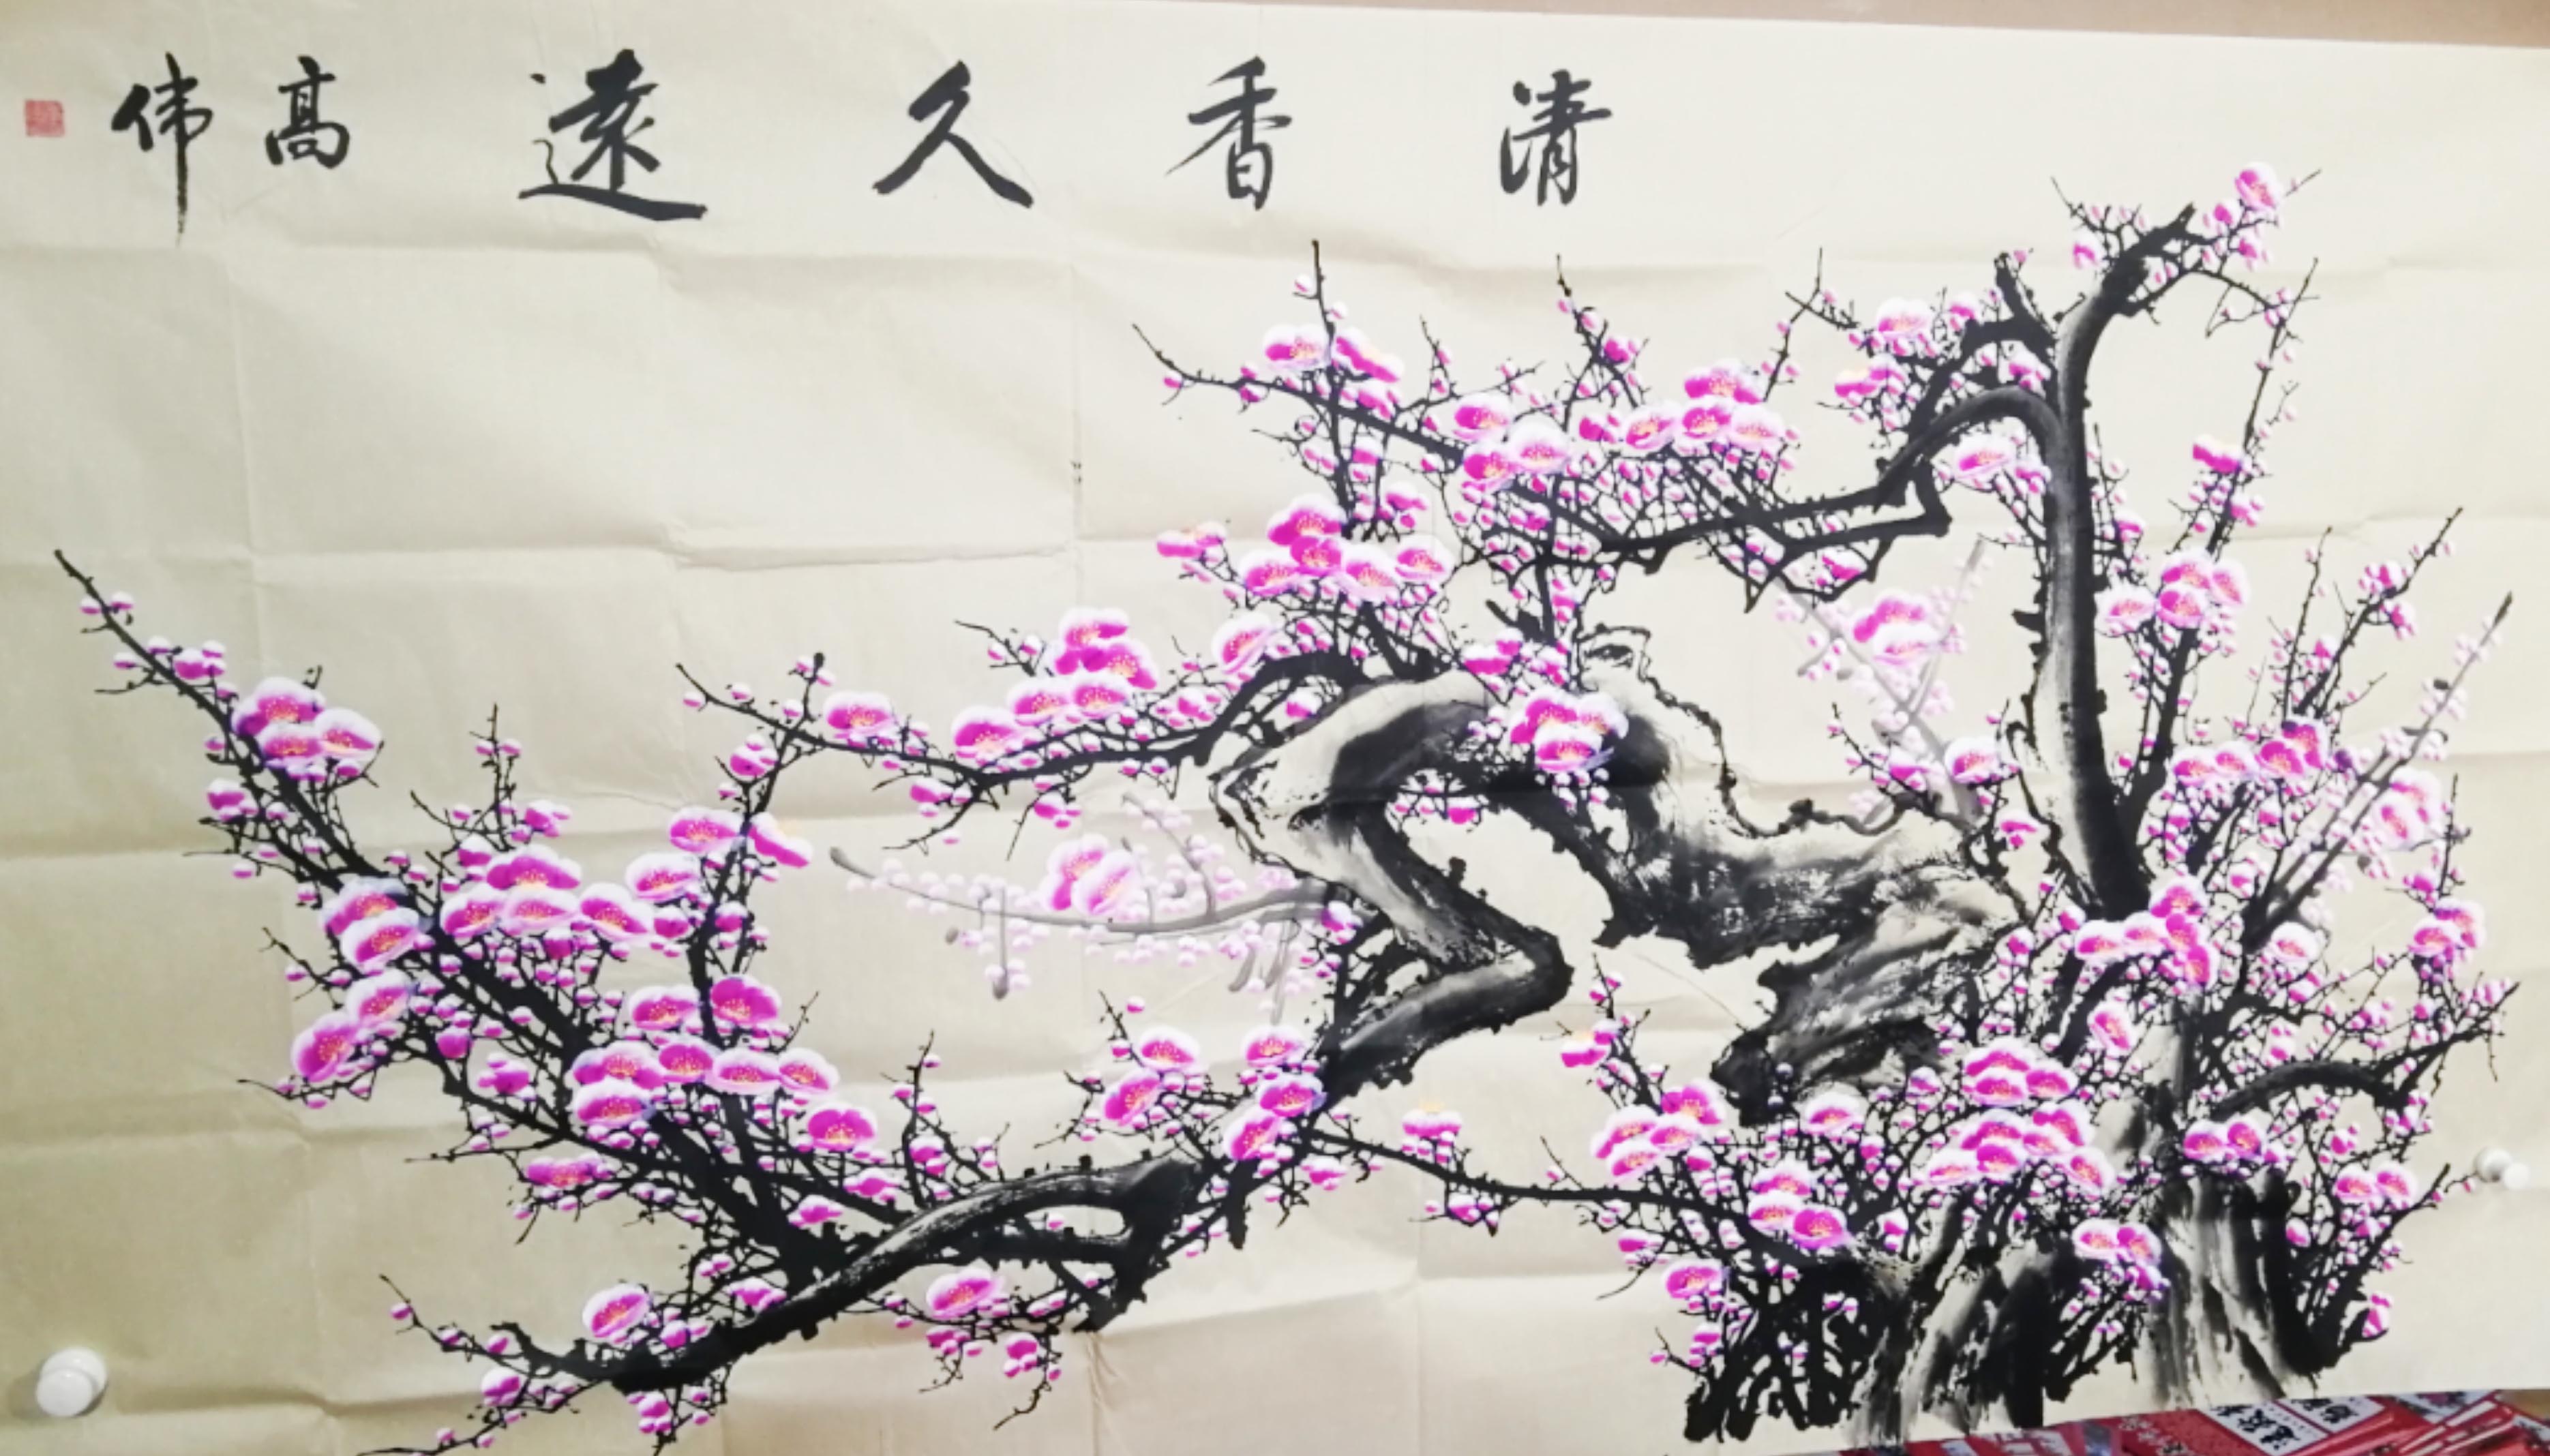 清香久遠 高伟